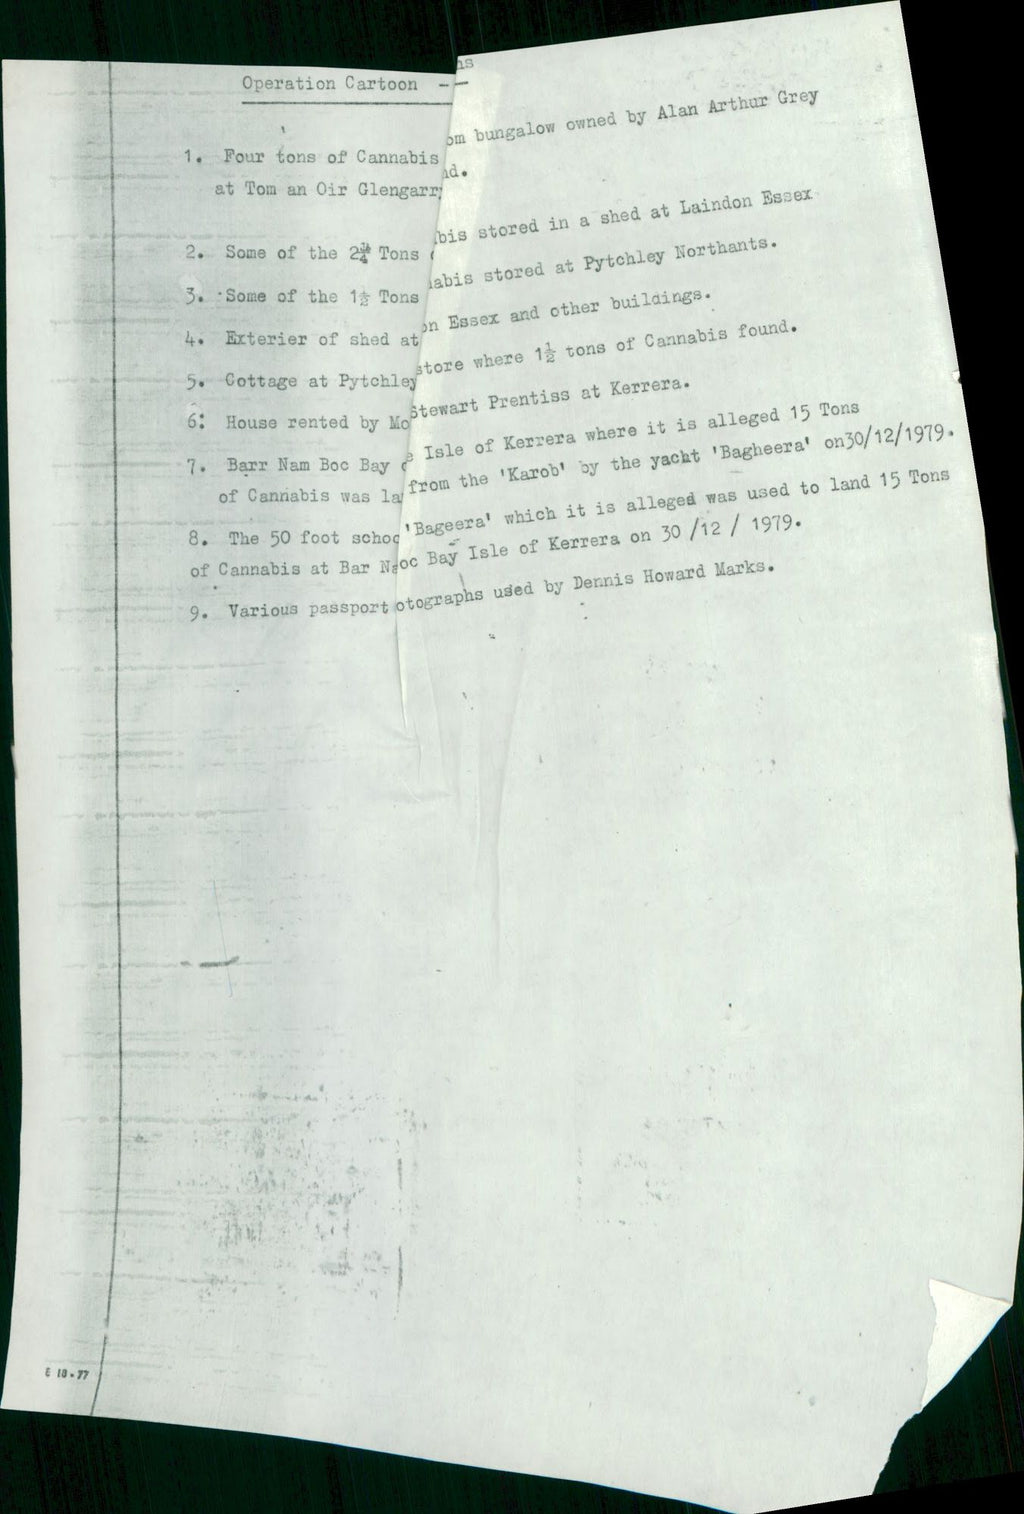 Operation Cartoon -
1. Four tons of Cannabis om bungalow owned by Alan Arthur Grey
at Tom an Oir Glengarr nd.
2. Some of the 2¾ Tons bis stored in a shed at Laindon Essex
3. Some of the 1½ Tons abis stored at Pytchley Northants.
4. Exterier of shed at on Essex and other buildings.
5. Cottage at Pytchley store where 1½ tons of Cannabis found.
6: House rented by Mo Stewart Prentiss at Kerrera.
7. Barr Nam Boc Bay Isle of Kerrera where it is alleged 15 Tons
of Cannabis was la from the 'Karob' by the yacht 'Bagheera' on30/12/1979.
8. The 50 foot schoo 'Bageera' which it is alleged was used to land 15 Tons
of Cannabis at Bar N oc Bay Isle of Kerrera on 30 /12 / 1979.
9. Various passport otographs used by Dennis Howard Marks.
E 10.77